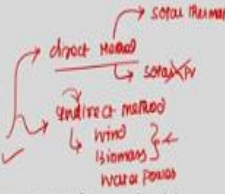 solar thermal
direct Method
solar PV
Indirect method
Wind
Biomass
Water power